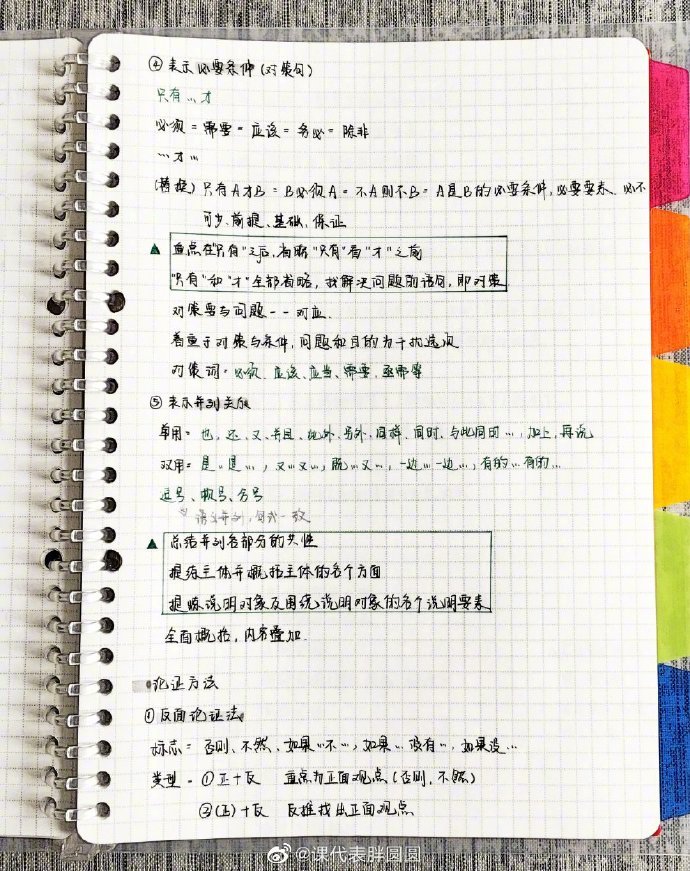 ④ 表示必要条件(对策句)
只有…才
必须=需要=应该=务必=除非
…才…
(替换) 只有A才B=B必须A=不A则不B=A是B的必要条件,必要要素、必不
可少、前提、基础、保证
▲ 重点在"只有"之后,省略"只有"看"才"之前
"只有"和"才"全部省略,找解决问题的语句,即对策
对策要与问题--对应.
着重于对策与条件,问题和目的为干扰选项
对策词:必须、应该、应当、需要、亟需等
⑤ 表示并列关系
单用=也,还、又、并且、此外、另外、同样、同时、与此同时…,加上,再说
双用=是…是…,又…又…,既…又…,一边…一边…,有的…有的…
逗号、顿号、分号
语义并列,句式一致
▲ 总结并列各部分的共性
提练主体并概括主体的各个方面
提炼说明对象及围绕说明对象的各个说明要素
全面概括,内容叠加.
论证方法
①反面论证法
标志=否则、不然、如果…不…,如果…没有…,如果没…
类型=①正+反 重点为正面观点(否则,不然)
②(正)+反 反推找出正面观点
@课代表胖圆圆